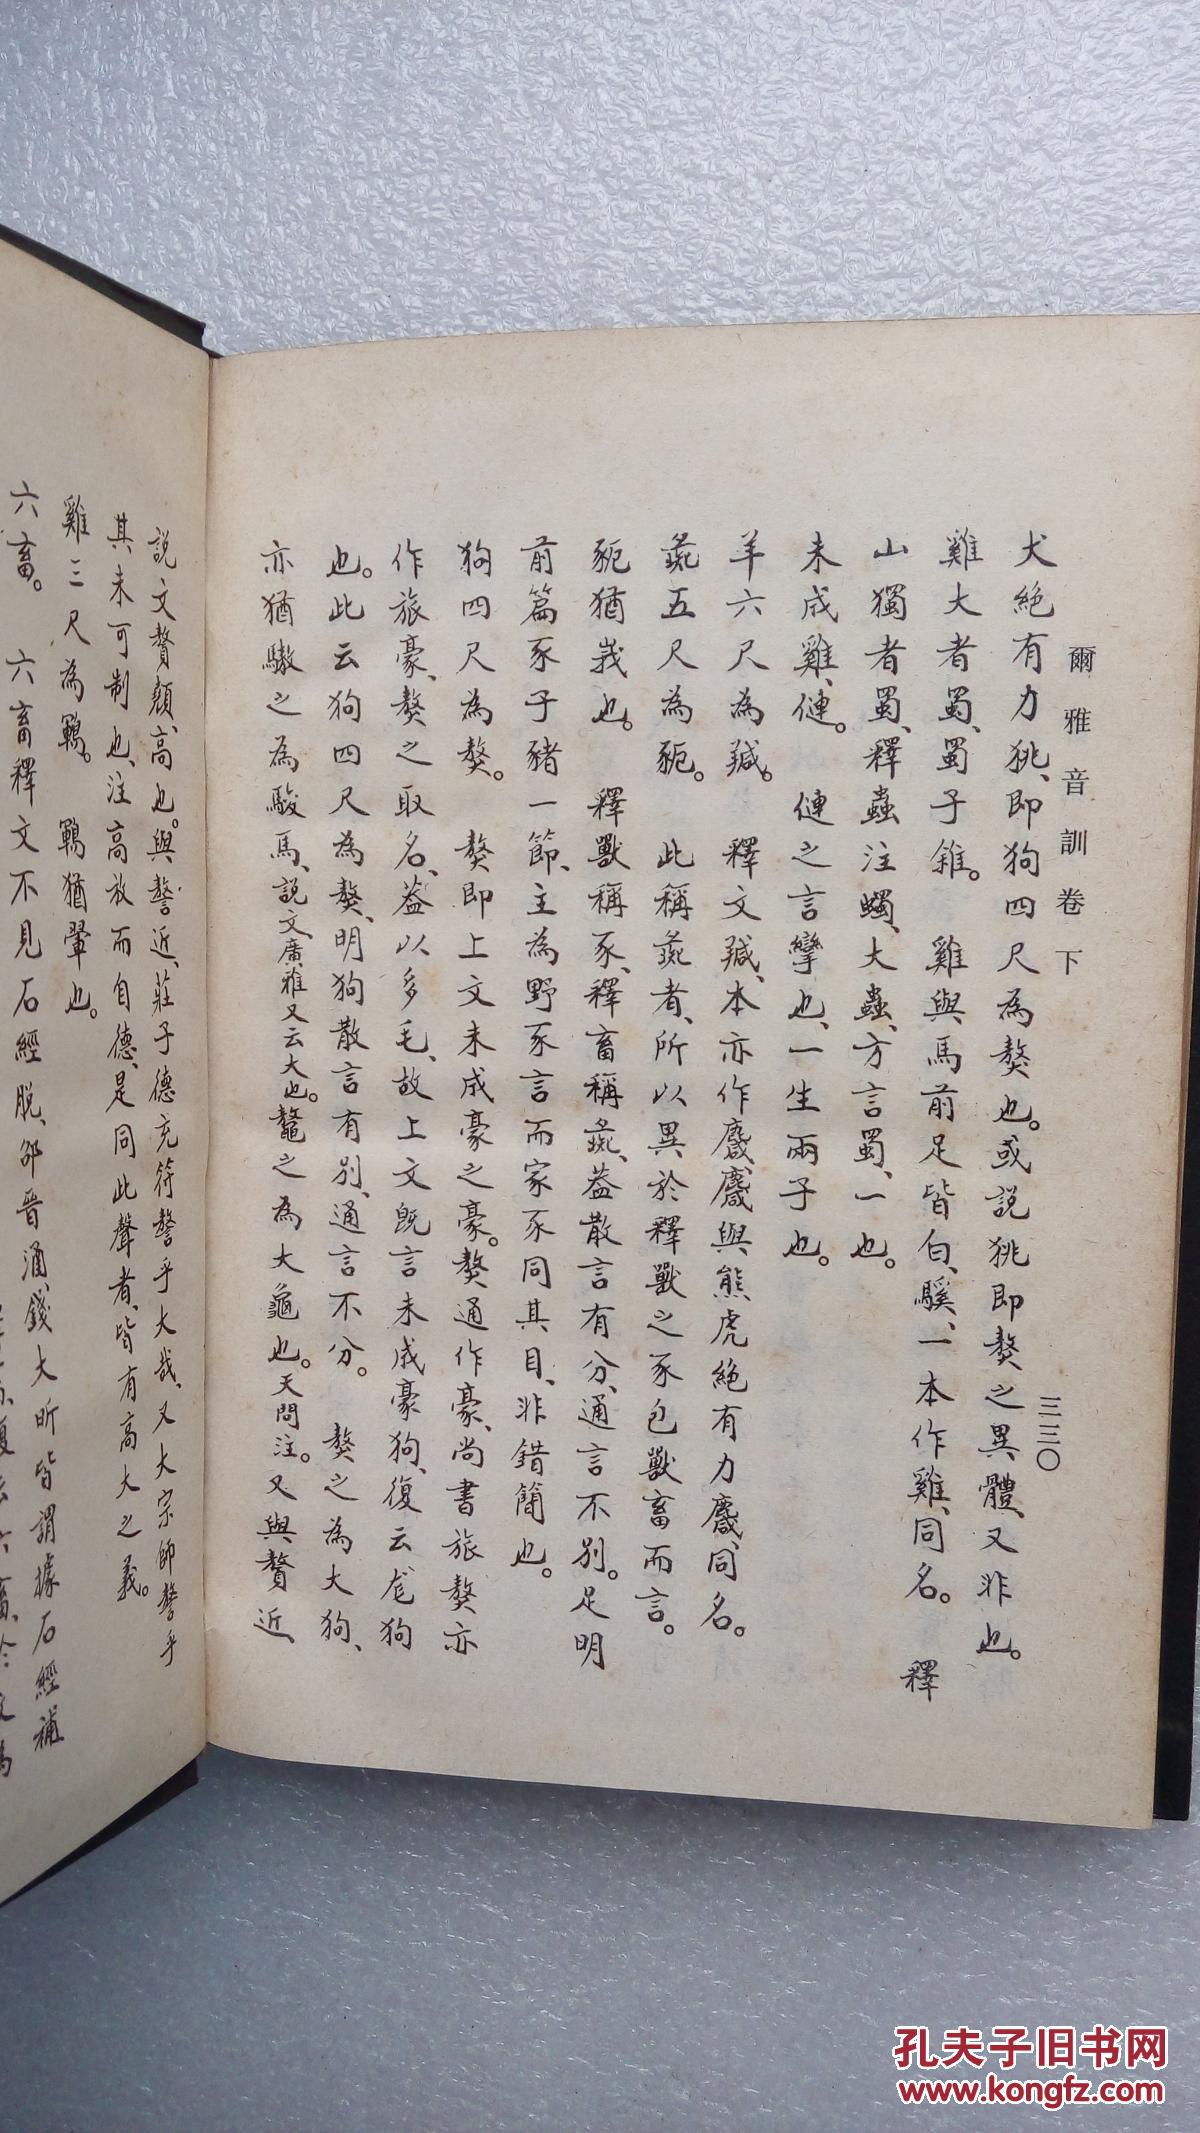 爾雅音訓卷下
三三〇
犬絕有力狣、即狗四尺為獒也。或說狣即獒之異體、又非也。
雞大者蜀、蜀子雓。 雞與馬前足皆白、騱、一本作雞、同名。 釋
山獨者蜀、釋蟲注蠋、大蟲、方言蜀、一也。
未成雞、僆。 僆之言孿也、一生兩子也。
羊六尺為羬。 釋文羬、本亦作麙、麙與熊虎絕有力麙、同名。
彘五尺為豟。 此稱彘者、所以異於釋獸之豕包獸畜而言。
豟猶峩也。 釋獸稱豕、釋畜稱彘、葢散言有分、通言不別。足明
前篇豕子豬一節、主為野豕言而家豕同其目、非錯簡也。
狗四尺為獒。 獒即上文未成豪之豪。獒通作豪、尚書旅獒亦
作旅豪、獒之取名、葢以多毛、故上文旣言未成豪狗、復云尨狗
也。此云狗四尺為獒、明狗散言有別、通言不分。 獒之為大狗、
亦猶驐之為駿馬、說文、廣雅又云大也。鼇之為大龜也。天問注。又與贅近、
說文贅顤、高也。與謷近、莊子德充符謷乎大哉、又大宗師謷乎
其未可制也、注高放而自德、是同此聲者、皆有高大之義。
雞三尺為鶤。 鶤猶翬也。
六畜。 六畜釋文不見石經脫、邵晉涵、錢大昕皆謂據石經補